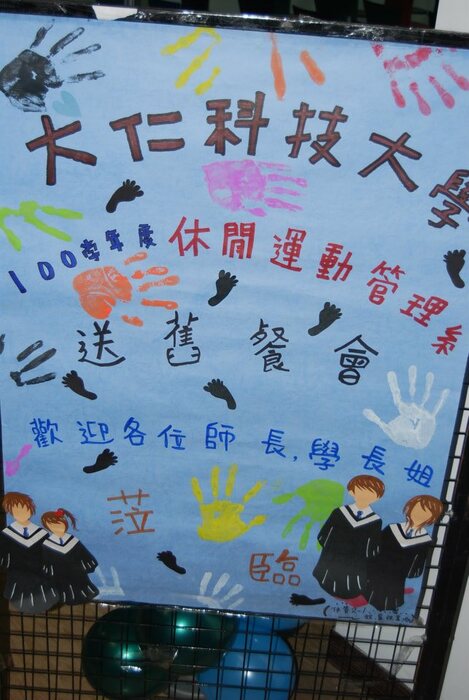 大仁科技大學
100學年度 休閒運動管理系
送舊餐會
歡迎各位師長,學長姐
蒞臨